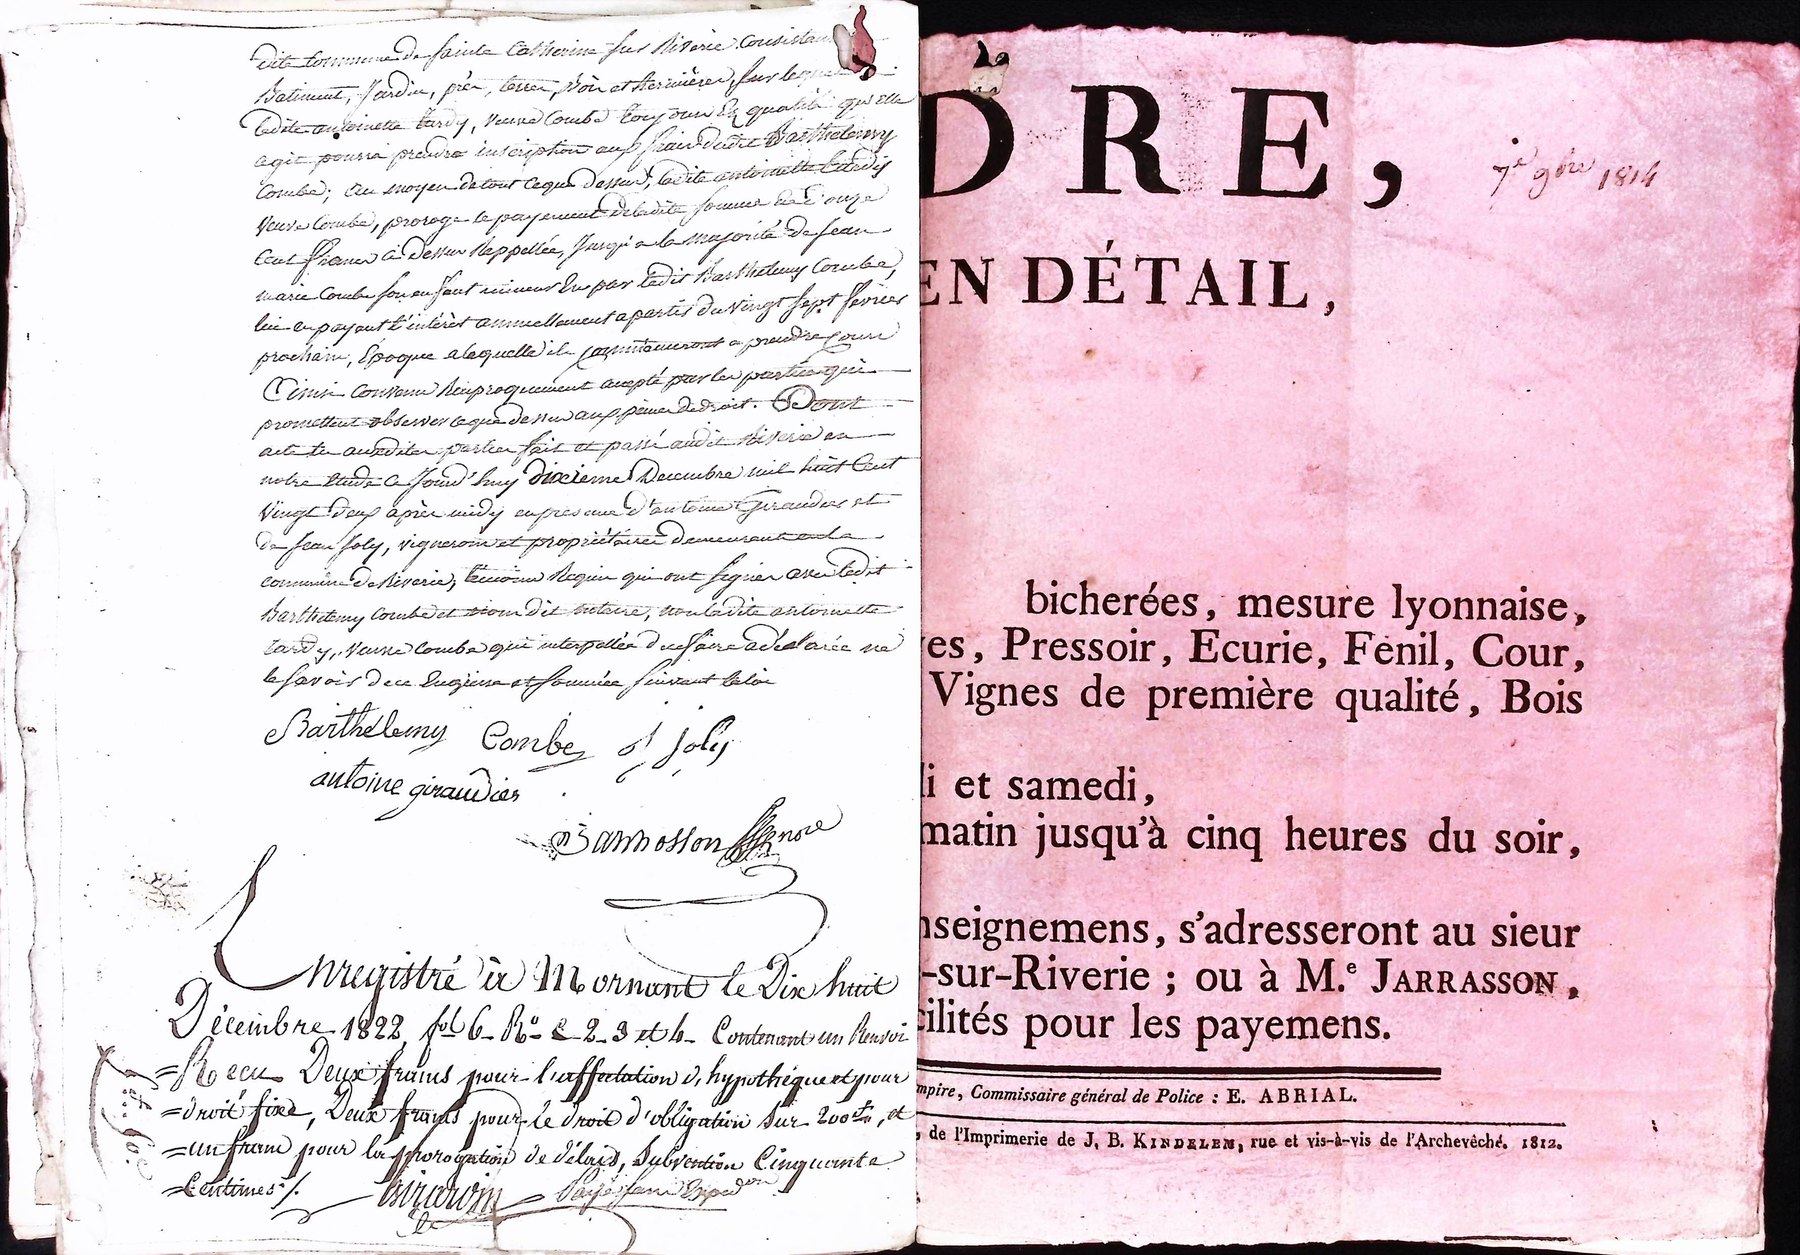 dite commune de Sainte Catherine sur Riverie Consistan
Batiment, Jardin, prés, terres, Bois et hermières, sur leque
ladite antoinette tardy, veuve Combe toujours En qualité qu'elle
agit pourra prendre inscription aux frais dudit Barthelemy
Combe; au moyen de tout ce que dessus, ladite antoinette tardy
veuve Combe, proroge le payement de ladite somme de d'onze
Cent francs ci dessus Rappellée, Jusqu'a la majorité de Jean
marie Combe son enfant mineur En par ledit Barthelemy Combe,
lui en payant l'intérêt annuellement a partir du vingt sept février
prochain, Epoque a laquelle ils commenceront a prendre Cours
Ainsi Convenu Réciproquement accepté par les parties qui
promettent observer ce que dessus aux peines de droit. Dont
acte les audites parties fait et passé audit Riverie en
notre Etude ce Jourd'huy dixieme Decembre mil huit Cent
vingt deux après midy en presence d'antoine Giraudier et
de Jean Joly, vignerons et propriétaires demeurant en la
commune de Riverie, témoins Requis qui ont signés avec ledit
Barthelemy Combe et nous dit notaire, non ladite antoinette
tardy, veuve Combe qui interpellée de ce faire a déclarée ne
le savoir de ce Enquise et sommée suivant la loi
Barthélemy Combe J Joly
antoine giraudier
Jarrosson nore
Enregistré à Mornant le Dix huit
Décembre 1822, fol 6 Ro C 2 3 et 4 Contenant un Renvoi
=Reçu Deux francs pour l'affectation d'hypothéque et pour
=droit fixe, Deux francs pour le droit d'obligation sur 200 f, et
=un franc pour la prorogation de délais, Subvention Cinquante
=Centimes /.
5f 50c
DRE,
7e 9bre 1814
EN DÉTAIL,
bicherées, mesure lyonnaise,
ves, Pressoir, Ecurie, Fenil, Cour,
Vignes de première qualité, Bois
di et samedi,
matin jusqu'à cinq heures du soir,
nseignemens, s'adresseront au sieur
-sur-Riverie ; ou à M.e JARRASSON,
cilités pour les payemens.
mpire, Commissaire général de Police : E. ABRIAL.
, de l'Imprimerie de J. B. KINDELEM, rue et vis-à-vis de l'Archevêché. 1812.